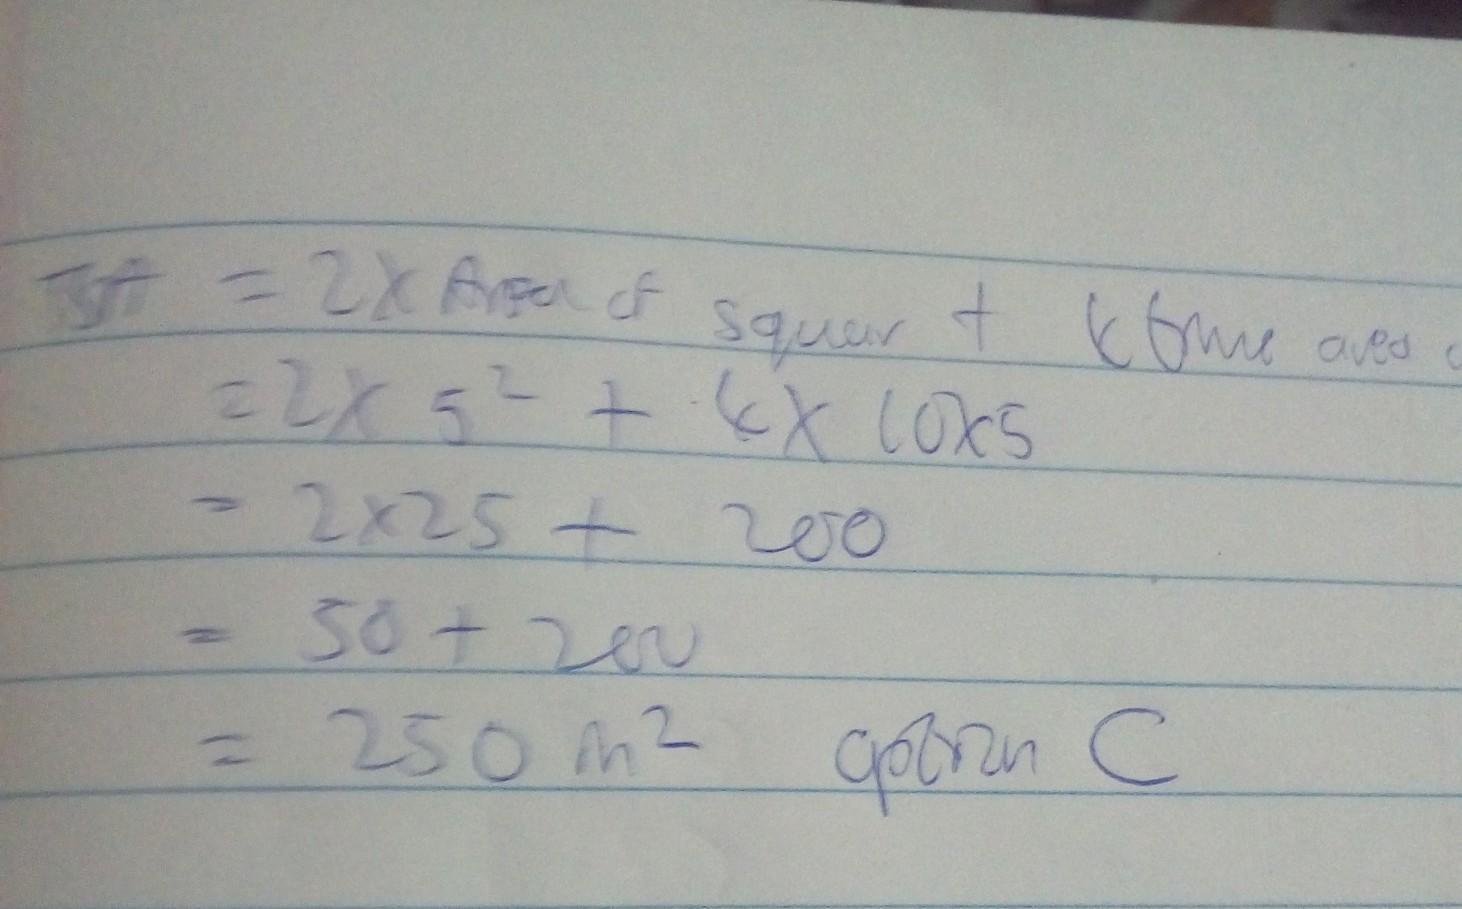 TSA = 2 x Area of squar + 4 time area
= 2 x 5² + 4 x 10x5
= 2x25 + 200
= 50 + 200
= 250 m² option C